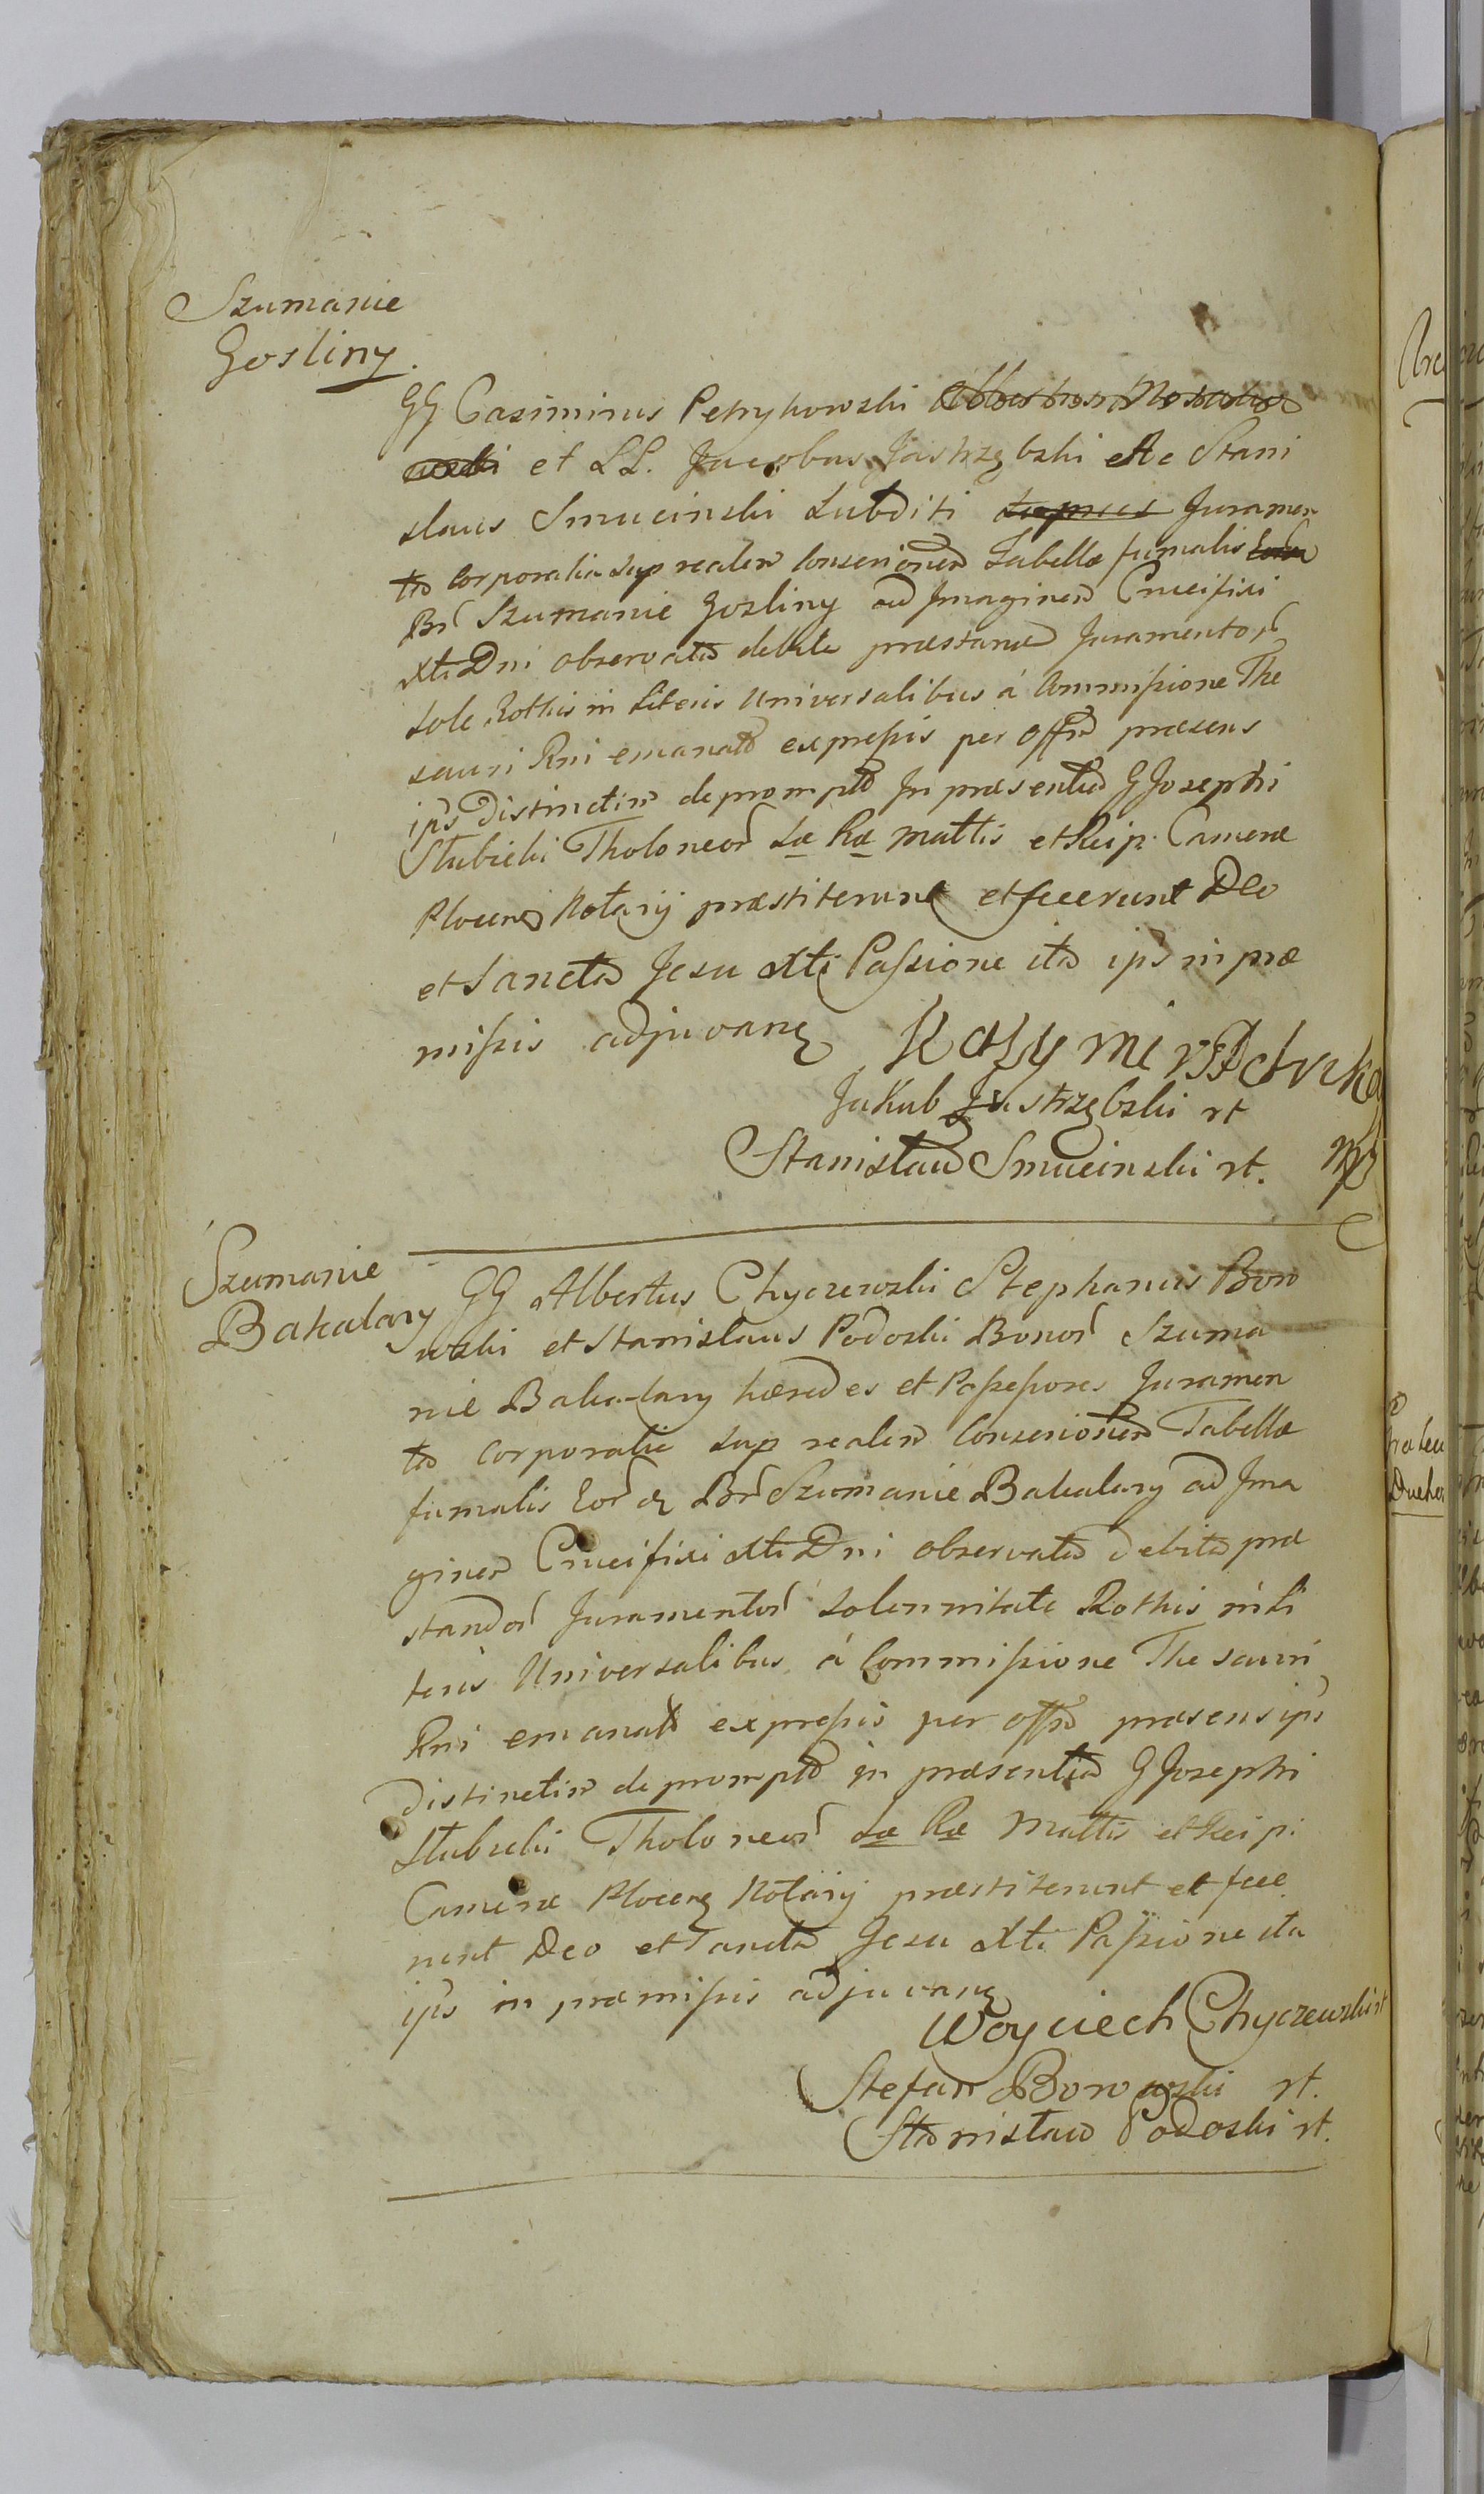 Szumanie
Gosliny.
GG Casimirus Petrykowski
et LL. Jacobus Jastrzębski Ac Stani
slaus Smucinski Subditi Juramen
ta Corporalia sup realem Consenionem Tabellæ fumalis
Br Szumanie Gosliny ad Imaginem Crucifixi
Xti Dni observata debita præstand Juramentor
Sole Rothis in Literis Universalibus á Commissione The
sauri Rni emanatis expressis per Offm præsens
ips Distinctim deprompta In præsentia G Josephi
Słubicki Theloneor Sæ Ræ Mattis et Reip. Cameræ
Plocen Notarij præstiterunt et fecerunt Deo
et Sancta Jesu Xti Passione ita ips in præ
missis adjuvan
Kazymirz Petryko
Jakub Jastrzębski rt
Stanisław Smucinski rt. mp
Szumanie
Bakalary
GG Albertus Chyczewski Stephanus Boro
wski et Stanislaus Podoski Bonor Szuma
nie Bakalary hæredes et Possessores Juramen
ta Corporalia sup realem Consenionem Tabellæ
fumalis Eor q Br Szumanie Bakalary ad Ima
ginem Crucifixi Xti Dni observata debita præ
standor Juramentor Solennitate Rothis in Li
teris Universalibus á Commissione Thesauri
Rni emanatis expressis per Offm præsens ips
Distinctim deprompta in præsentia G Josephi
Słubicki Theloneor Sæ Ræ Mattis et Reip:
Cameræ Plocen Notarij præstiterunt et fece
runt Deo et Sancta Jesu Xti Passione ita
ips in præmissis adjuvan
Woyciech Chyczewski rt
Stefan Borowski rt.
Stanisław Podoski rt.